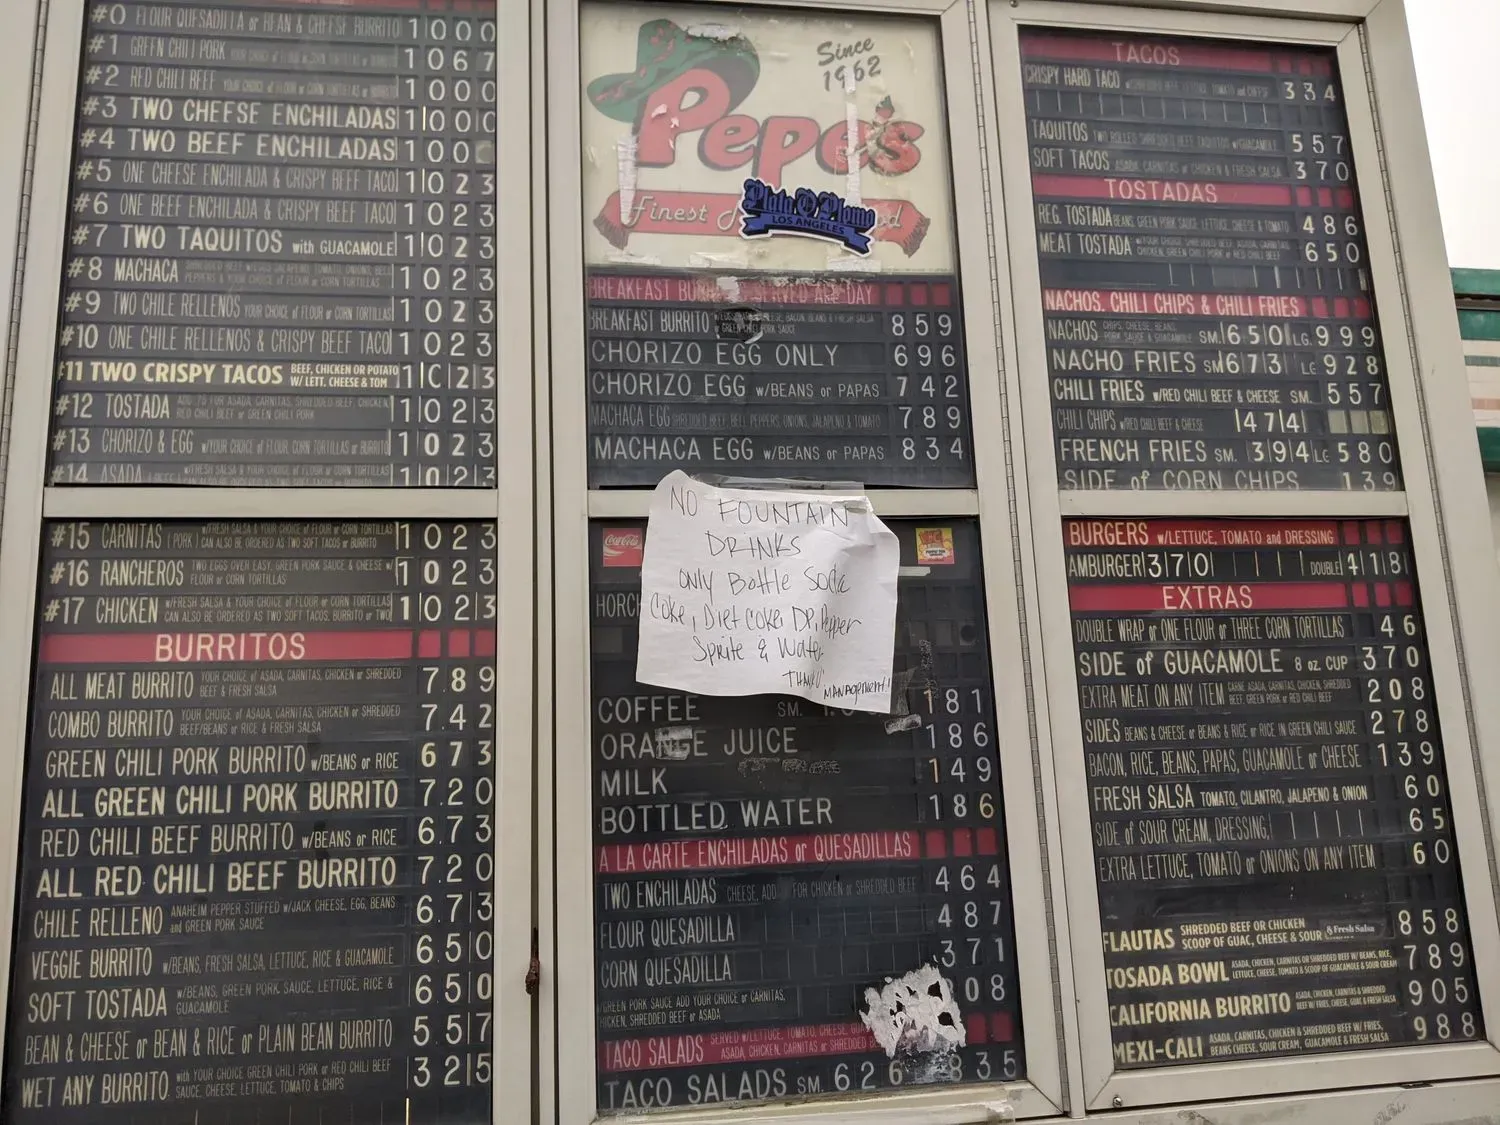 #0 FLOUR QUESADILLA or BEAN & CHEESE BURRITO 1000
#1 GREEN CHILI PORK 1067
#2 RED CHILI BEEF 1000
#3 TWO CHEESE ENCHILADAS 1000
#4 TWO BEEF ENCHILADAS 100
#5 ONE CHEESE ENCHILADA & CRISPY BEEF TACO 1023
#6 ONE BEEF ENCHILADA & CRISPY BEEF TACO 1023
#7 TWO TAQUITOS with GUACAMOLE 1023
#8 MACHACA 1023
#9 TWO CHILE RELLENOS YOUR CHOICE of FLOUR or CORN TORTILLAS 1023
#10 ONE CHILE RELLENOS & CRISPY BEEF TACO 1023
#11 TWO CRISPY TACOS BEEF, CHICKEN OR POTATO W/ LETT. CHEESE & TOM 1023
#12 TOSTADA 1023
#13 CHORIZO & EGG w/YOUR CHOICE of FLOUR, CORN TORTILLAS or BURRITO 1023
#14 ASADA 1023
#15 CARNITAS (PORK) w/FRESH SALSA & YOUR CHOICE of FLOUR or CORN TORTILLAS CAN ALSO BE ORDERED AS TWO SOFT TACOS or BURRITO 1023
#16 RANCHEROS TWO EGGS OVER EASY, GREEN PORK SAUCE, & CHEESE w/ FLOUR or CORN TORTILLAS 1023
#17 CHICKEN w/FRESH SALSA & YOUR CHOICE of FLOUR or CORN TORTILLAS CAN ALSO BE ORDERED AS TWO SOFT TACOS, BURRITO or TWO 1023
BURRITOS
ALL MEAT BURRITO YOUR CHOICE of ASADA, CARNITAS, CHICKEN or SHREDDED BEEF & FRESH SALSA 7.89
COMBO BURRITO YOUR CHOICE of ASADA, CARNITAS, CHICKEN or SHREDDED BEEF/BEANS or RICE & FRESH SALSA 7.42
GREEN CHILI PORK BURRITO w/BEANS or RICE 673
ALL GREEN CHILI PORK BURRITO 7.20
RED CHILI BEEF BURRITO w/BEANS or RICE 6.73
ALL RED CHILI BEEF BURRITO 7.20
CHILE RELLENO ANAHEIM PEPPER STUFFED w/JACK CHEESE, EGG, BEANS and GREEN PORK SAUCE 6.73
VEGGIE BURRITO w/BEANS, FRESH SALSA, LETTUCE, RICE & GUACAMOLE 6.50
SOFT TOSTADA w/BEANS, GREEN PORK SAUCE, LETTUCE, RICE & GUACAMOLE 6.50
BEAN & CHEESE or BEAN & RICE or PLAIN BEAN BURRITO 5.57
WET ANY BURRITO with YOUR CHOICE GREEN CHILI PORK or RED CHILI BEEF SAUCE, CHEESE, LETTUCE, TOMATO & CHIPS 3215
Since 1962
Pepe's
Finest
Plata O Plomo
LOS ANGELES
BREAKFAST SERVED ALL DAY
BREAKFAST BURRITO 859
CHORIZO EGG ONLY 696
CHORIZO EGG w/BEANS or PAPAS 742
MACHACA EGG SHREDDED BEEF, BELL PEPPERS, ONIONS, JALAPENO & TOMATO 789
MACHACA EGG w/BEANS or PAPAS 834
Coca-Cola
NO FOUNTAIN
DRINKS
only Bottle Soda
Coke, Diet Coke, DR, Pepper
Sprite & Water
THANKS
MANAGEMENT!
HORCH
COFFEE SM. 181
ORANGE JUICE 186
MILK 149
BOTTLED WATER 186
A LA CARTE ENCHILADAS or QUESADILLAS
TWO ENCHILADAS CHEESE, ADD FOR CHICKEN or SHREDDED BEEF 464
FLOUR QUESADILLA 487
CORN QUESADILLA 371
GREEN PORK SAUCE ADD YOUR CHOICE or CARNITAS, CHICKEN, SHREDDED BEEF or ASADA 08
TACO SALADS SERVED w/LETTUCE, TOMATO, CHEESE, ASADA, CHICKEN, CARNITAS or SHREDDED
TACO SALADS SM. 626 835
TACOS
CRISPY HARD TACO 334
TAQUITOS 557
SOFT TACOS ASADA, CARNITAS or CHICKEN & FRESH SALSA 370
TOSTADAS
REG. TOSTADA BEANS, GREEN PORK SAUCE, LETTUCE, CHEESE & TOMATO 486
MEAT TOSTADA 650
NACHOS, CHILI CHIPS & CHILI FRIES
NACHOS CHIPS, CHEESE, BEANS, PORK SAUCE & GUACAMOLE SM. 650 LG. 999
NACHO FRIES SM 673 LG 928
CHILI FRIES w/RED CHILI BEEF & CHEESE SM. 557
CHILI CHIPS w/RED CHILI BEEF & CHEESE 474
FRENCH FRIES SM. 394 LG 580
SIDE of CORN CHIPS 139
BURGERS w/LETTUCE, TOMATO and DRESSING
AMBURGER 370 DOUBLE 418
EXTRAS
DOUBLE WRAP or ONE FLOUR or THREE CORN TORTILLAS 46
SIDE of GUACAMOLE 8 oz. CUP 370
EXTRA MEAT ON ANY ITEM CARNE ASADA, CARNITAS, CHICKEN, SHREDDED BEEF, GREEN PORK or RED CHILI BEEF 208
SIDES BEANS & CHEESE or BEANS & RICE or RICE IN GREEN CHILI SAUCE 278
BACON, RICE, BEANS, PAPAS, GUACAMOLE or CHEESE 139
FRESH SALSA TOMATO, CILANTRO, JALAPENO & ONION 60
SIDE of SOUR CREAM, DRESSING, 65
EXTRA LETTUCE, TOMATO or ONIONS ON ANY ITEM 60
FLAUTAS SHREDDED BEEF OR CHICKEN SCOOP OF GUAC, CHEESE & SOUR & Fresh Salsa 858
TOSADA BOWL ASADA, CHICKEN, CARNITAS OR SHREDDED BEEF W/ BEANS, RICE, LETTUCE, CHEESE, TOMATO & SCOOP OF GUACAMOLE & SOUR CREAM 789
CALIFORNIA BURRITO ASADA, CHICKEN, CARNITAS & SHREDDED BEEF W/ FRIES, CHEESE, GUAC & FRESH SALSA 905
MEXI-CALI ASADA, CARNITAS, CHICKEN & SHREDDED BEEF W/ FRIES, BEANS CHEESE, SOUR CREAM, GUACAMOLE & FRESH SALSA 988